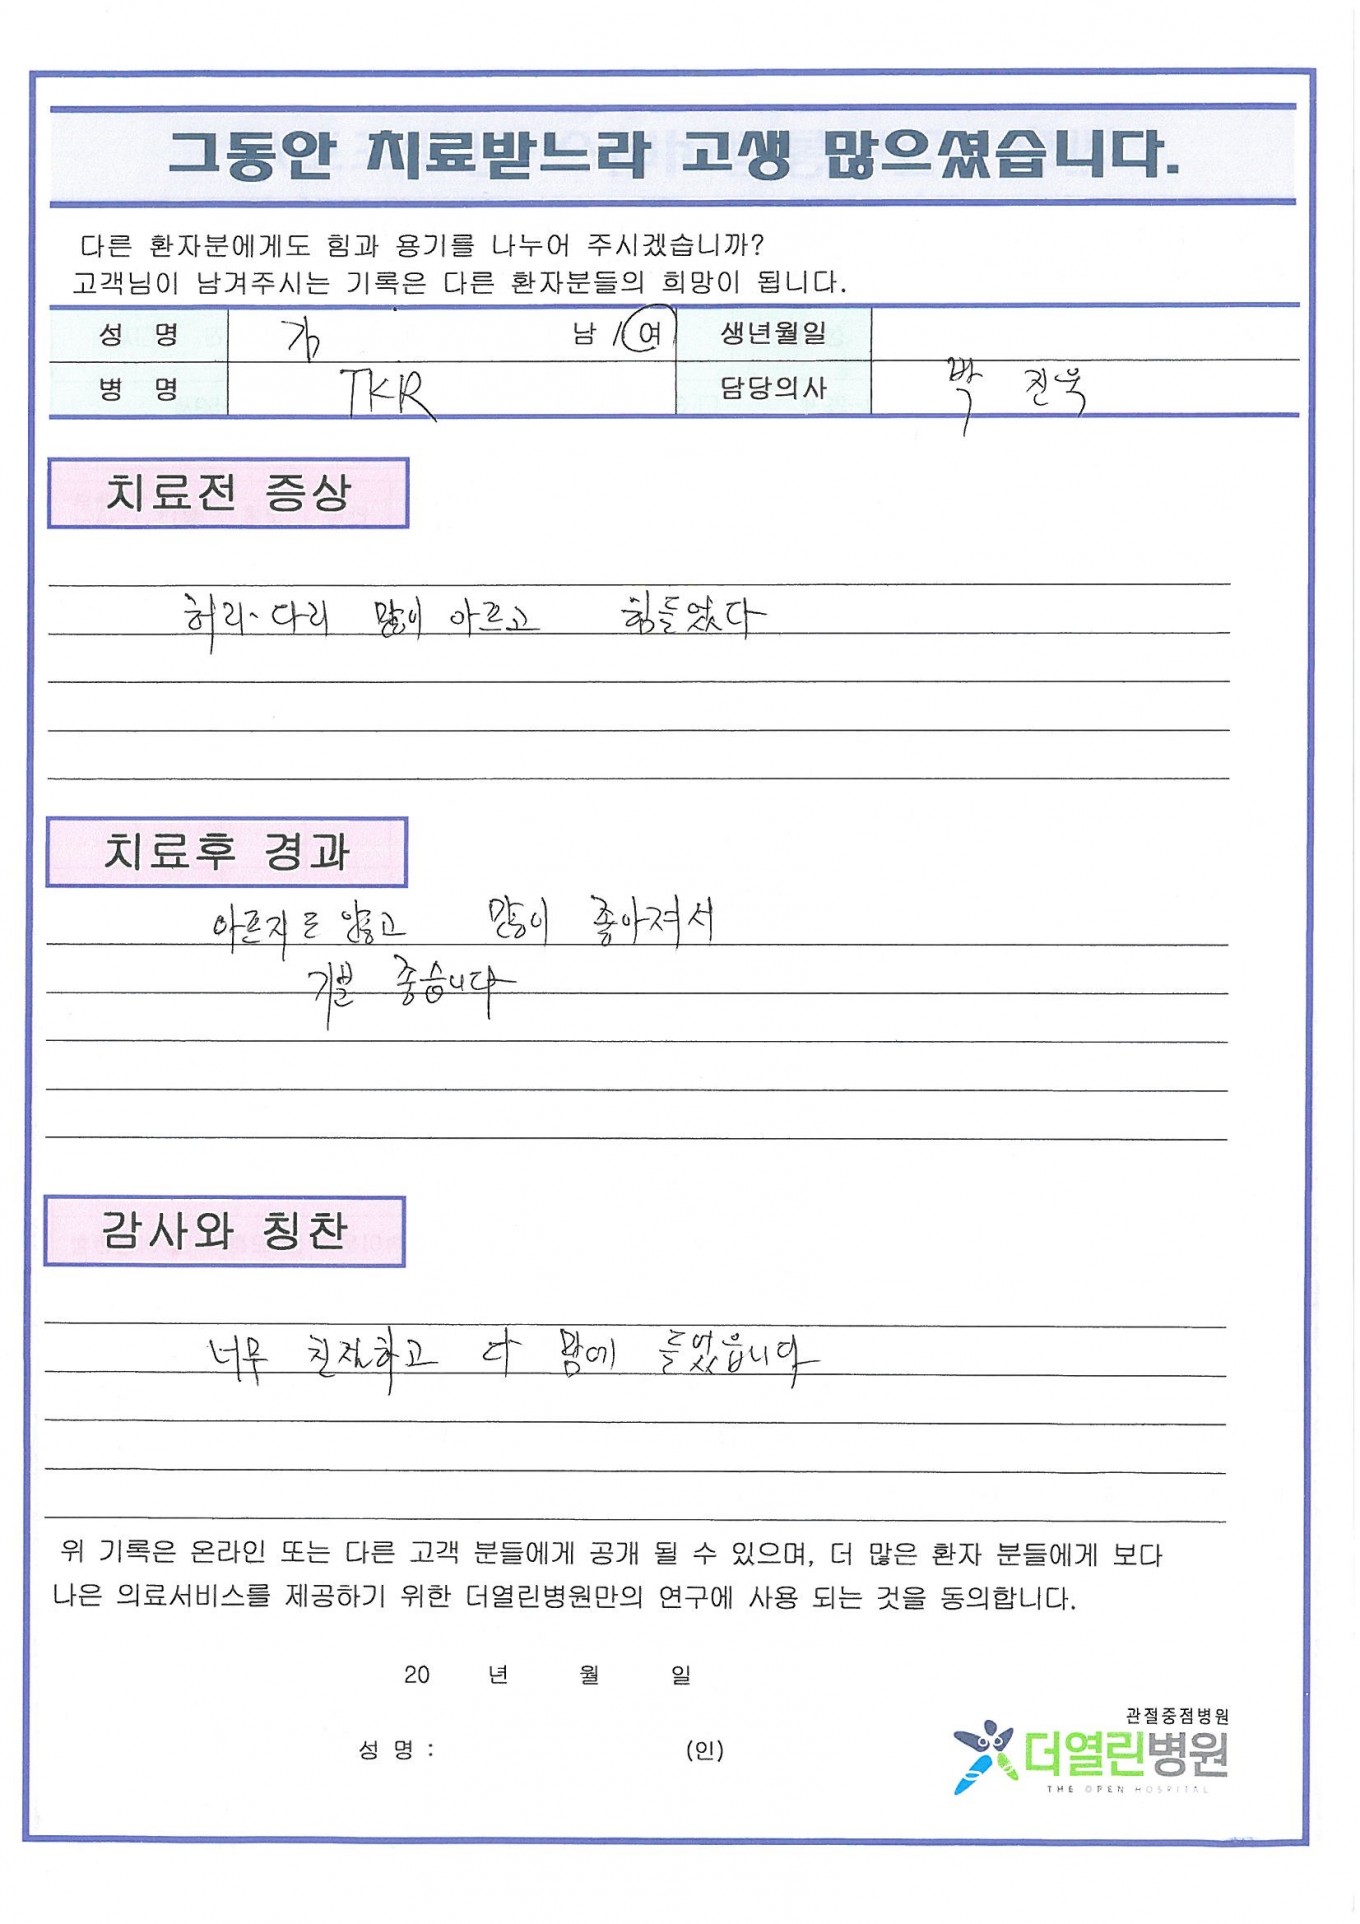 그동안 치료받느라 고생 많으셨습니다.
다른 환자분에게도 힘과 용기를 나누어 주시겠습니까?
고객님이 남겨주시는 기록은 다른 환자분들의 희망이 됩니다.
성 명 김 남 / 여 생년월일
병 명 TKR 담당의사 박 진욱
치료전 증상
허리、다리 많이 아프고 힘들었다
치료후 경과
아프지도 않고 많이 좋아져서
기분 좋습니다
감사와 칭찬
너무 친절하고 다 맘에 들었읍니다
위 기록은 온라인 또는 다른 고객 분들에게 공개 될 수 있으며, 더 많은 환자 분들에게 보다
나은 의료서비스를 제공하기 위한 더열린병원만의 연구에 사용 되는 것을 동의합니다.
20 년 월 일
성 명 : (인)
관절중점병원
더열린병원
THE OPEN HOSPITAL